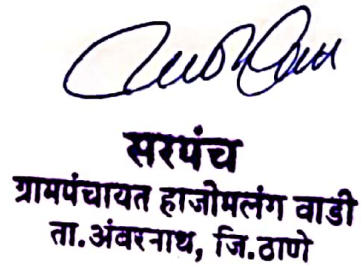 सरपंच
ग्रामपंचायत हाजीमलंग वाडी
ता.अंबरनाथ, जि.ठाणे